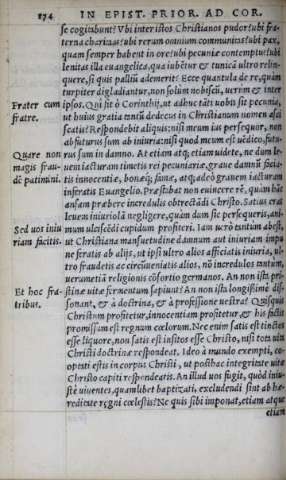 174 IN EPIST. PRIOR. AD COR.
se cogitabunt? Vbi inter istos Christianos pudor? ubi fra-
terna charitas? ubi rerum omnium communitas? ubi pax,
quam semper habent in ore? ubi pecuniæ contemptus? ubi
lenitas illa euangelica, qua iubetur & tunica ultro relin-
quere, si quis pallium ademerit? Ecce quantula de re, quàm
turpiter digladiantur, non solum nobiscum, uerùm & inter
Frater cum fratre.
ipsos. Qui fit ô Corinthij, ut adhuc tāti uobis sit pecunia,
ut huius gratia
in Christianum nomen
Respondebit aliquis: nisi meum ius persequor, non
ab futurus sum ab iniuria: nisi quod meum est uēdico, futu-
Quare non magis frau- dē patimini.
rus sum in damno. At etiam atq; etiam uidete, ne dum le-
uem iacturam timetis rei pecuniariæ, graue damnū facia-
tis innocentiæ, bonæq; famæ, atq; adeò grauem iacturam
inferatis Euangelio. Præstabat non euincere rē, quàm hāc
ansam præbere incredulis obtrectādi Christo. Satius erat
leuem iniuriolā negligere, quàm dum sic persequeris, ani-
Sed uos iniu riam facitis.
mum ulciscēdi cupidum profiteri. Iam uerò tantùm abest,
ut Christiana mansuetudine damnum aut iniuriam impu
ne feratis ab alijs, ut ipsi ultro alios afficiatis iniuria, ul-
tro fraudetis ac circumueniatis alios, nō incredulos tantùm,
uerumetiā religionis cōsortio germanos. An non ista pri-
Et hoc fra- tribus.
stinæ uitæ fermentum sapiunt? An non ista longissimè dis-
sonant, & à doctrina, & à professione uestra? Quisquis
Christum profitetur, innocentiam profitetur, & his factis
promissum est regnum cœlorum. Nec enim satis est tinctos
esse liquore, non satis est insitos esse Christo, nisi tota uita
Christi doctrinæ respondeat. Ideo à mundo exempti, co-
optati estis in corpus Christi, ut posthac integritate uitæ
Christo capiti respondeatis. An illud uos fugit, quòd iniu-
stè uiuentes, quamlibet baptizati, excludendi sint ab hæ-
reditate regni cœlestis? Ne quis sibi imponat, etiam atque
etiam